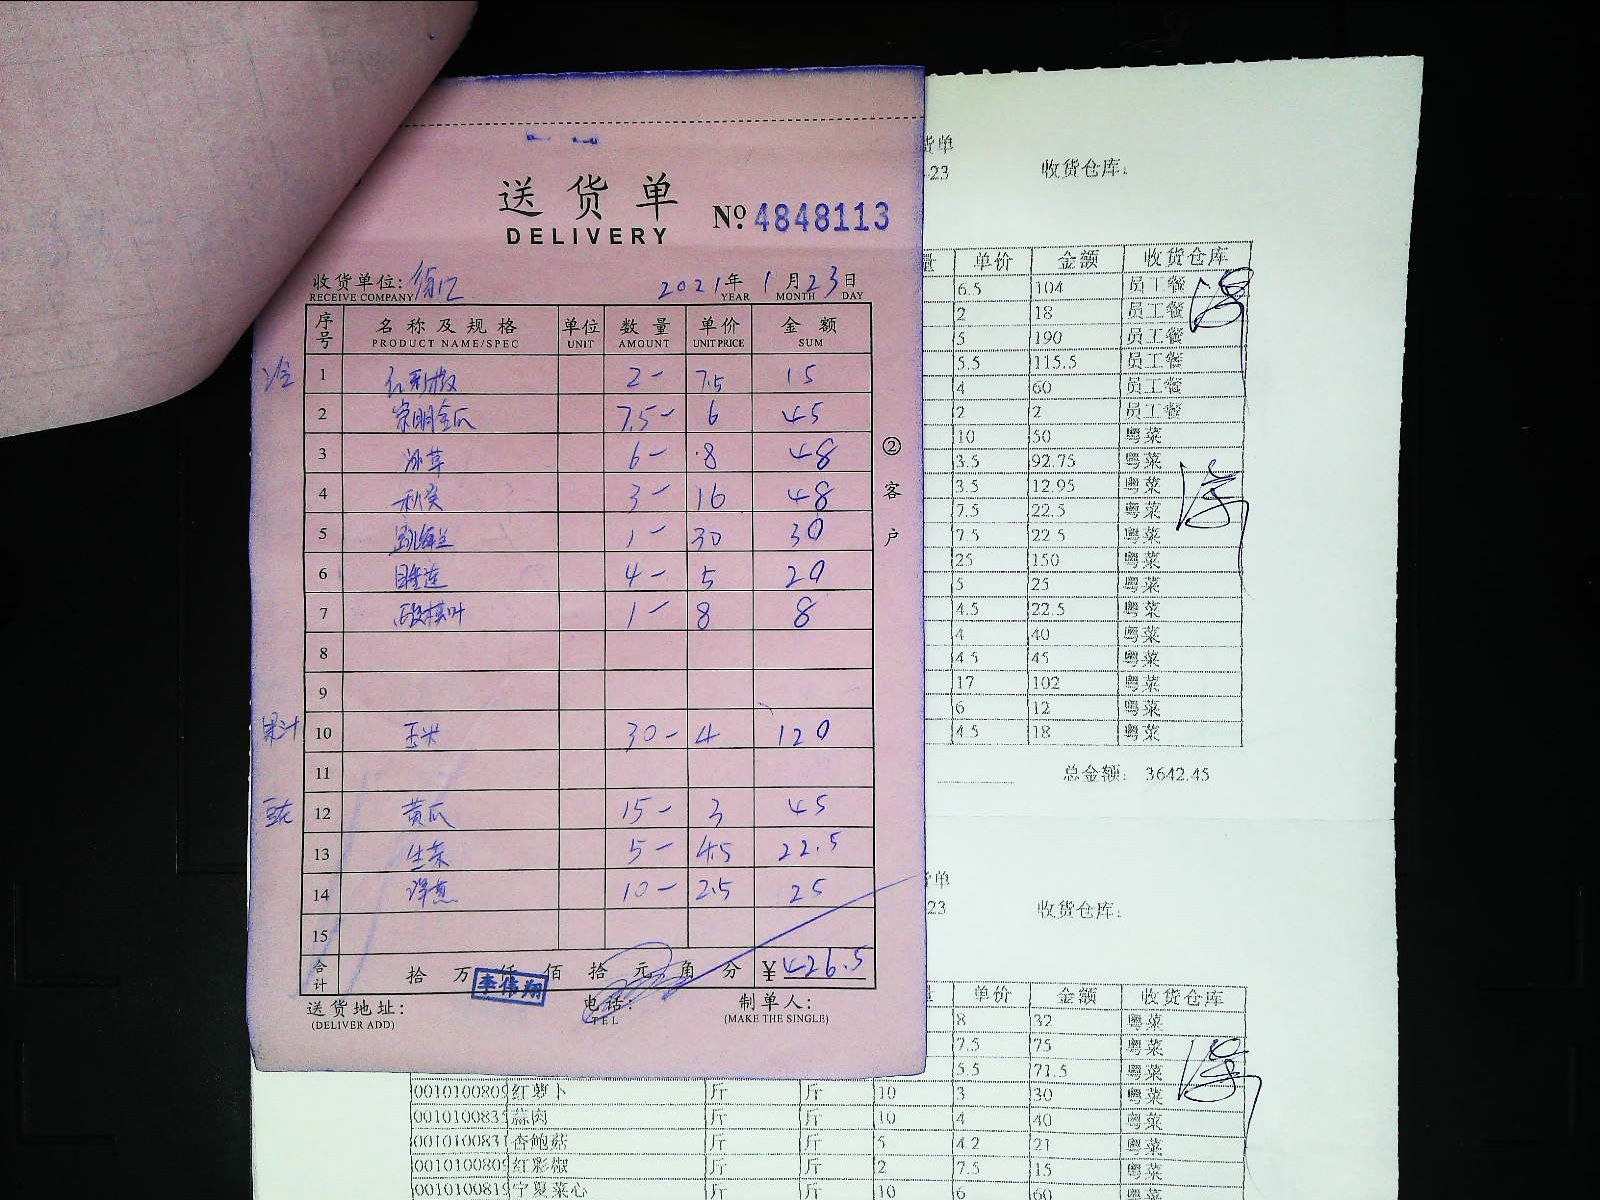 送货单
DELIVERY
No. 4848113
收货单位:
RECEIVE COMPANY
2021年 1月23日
YEAR MONTH DAY
序号 名称及规格 单位 数量 单价 金额
PRODUCT NAME/SPEC UNIT AMOUNT UNIT PRICE SUM
1 2- 7.5 15
2 崇明金瓜 7.5- 6 45
3 冰草 6- 8 48
4 秋葵 3- 16 48
5 1- 30 30
6 睡莲 4- 5 20
7 1- 8 8
8
9
果汁 10 玉米 30- 4 120
11
12 黄瓜 15- 3 45
13 生菜 5- 4.5 22.5
14 洋葱 10- 2.5 25
15
合计 拾 万 仟 佰 拾 元 角 分 ¥426.5
李伟翔
送货地址: 电话: 制单人:
(DELIVER ADD) TEL (MAKE THE SINGLE)
②客户
货单
23 收货仓库:
量 单价 金额 收货仓库
6.5 104 员工餐
2 18 员工餐
5 190 员工餐
5.5 115.5 员工餐
4 60 员工餐
2 2 员工餐
10 50 粤菜
3.5 92.75 粤菜
3.5 12.95 粤菜
7.5 22.5 粤菜
7.5 22.5 粤菜
25 150 粤菜
5 25 粤菜
4.5 22.5 粤菜
4 40 粤菜
4.5 45 粤菜
17 102 粤菜
6 12 粤菜
4.5 18 粤菜
总金额: 3642.45
单
23 收货仓库:
量 单价 金额 收货仓库
8 32 粤菜
7.5 75 粤菜
5.5 71.5 粤菜
0010100809 红萝卜 斤 斤 10 3 30 粤菜
001010083 蒜肉 斤 斤 10 4 40 粤菜
001010083 杏鲍菇 斤 斤 5 4.2 21 粤菜
001010080 红彩椒 斤 斤 2 7.5 15 粤菜
001010081 宁夏菜心 斤 斤 10 6 60 粤菜